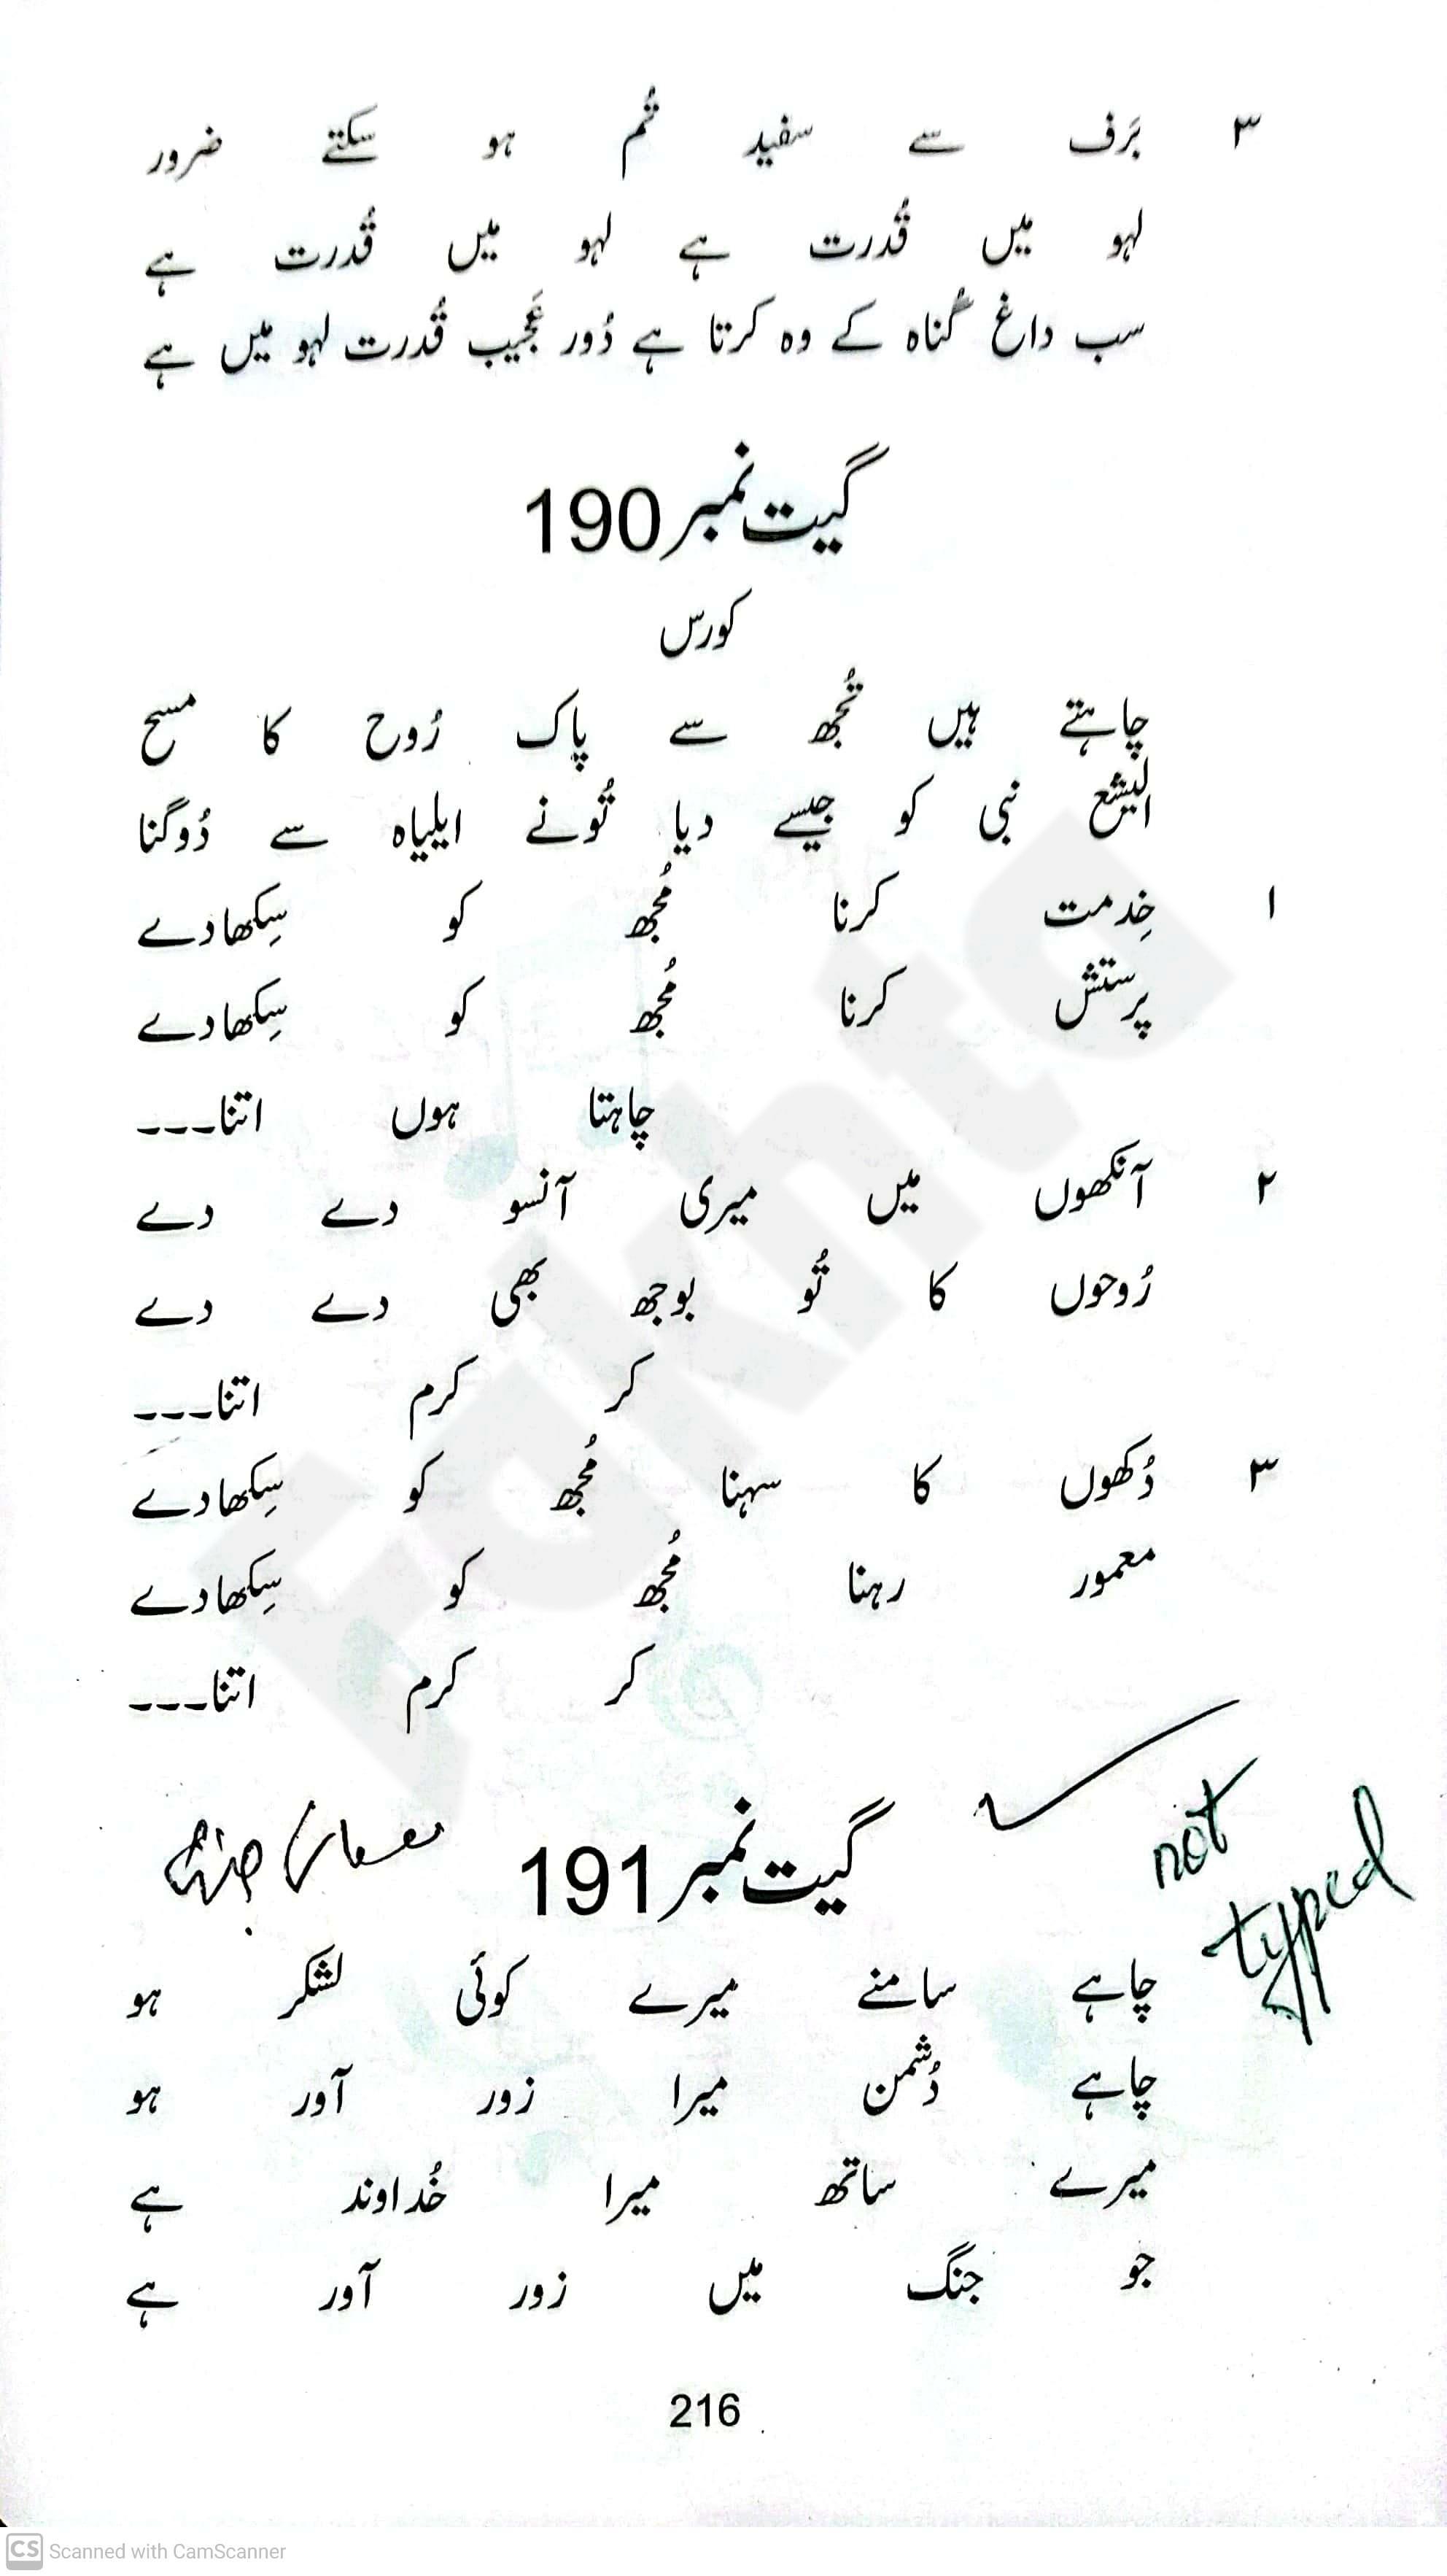 ۳ بَرف سے سفید تُم ہو سکتے ضرور
لہو میں قُدرت ہے لہو میں قُدرت ہے
سب داغ گُناہ کے وہ کرتا ہے دُور عَجیب قُدرت لہو میں ہے
گیت نمبر 190
کورس
چاہتے ہیں تُجھ سے پاک رُوح کا مسح
الیشع نبی کو جیسے دیا تُونے ایلیاہ سے دُوگنا
۱ خِدمت کرنا مُجھ کو سِکھادے
پرستش کرنا مُجھ کو سِکھادے
چاہتا ہوں اتنا۔۔۔
۲ آنکھوں میں میری آنسو دے دے
رُوحوں کا تُو بوجھ بھی دے دے
کر کرم اتنا۔۔۔
۳ دُکھوں کا سہنا مُجھ کو سِکھادے
معمور رہنا مُجھ کو سِکھادے
کر کرم اتنا۔۔۔
not typed
گیت نمبر 191
چاہے سامنے میرے کوئی لشکر ہو
چاہے دُشمن میرا زور آور ہو
میرے ساتھ میرا خُداوند ہے
جو جنگ میں زور آور ہے
216
Fakhta
CS Scanned with CamScanner